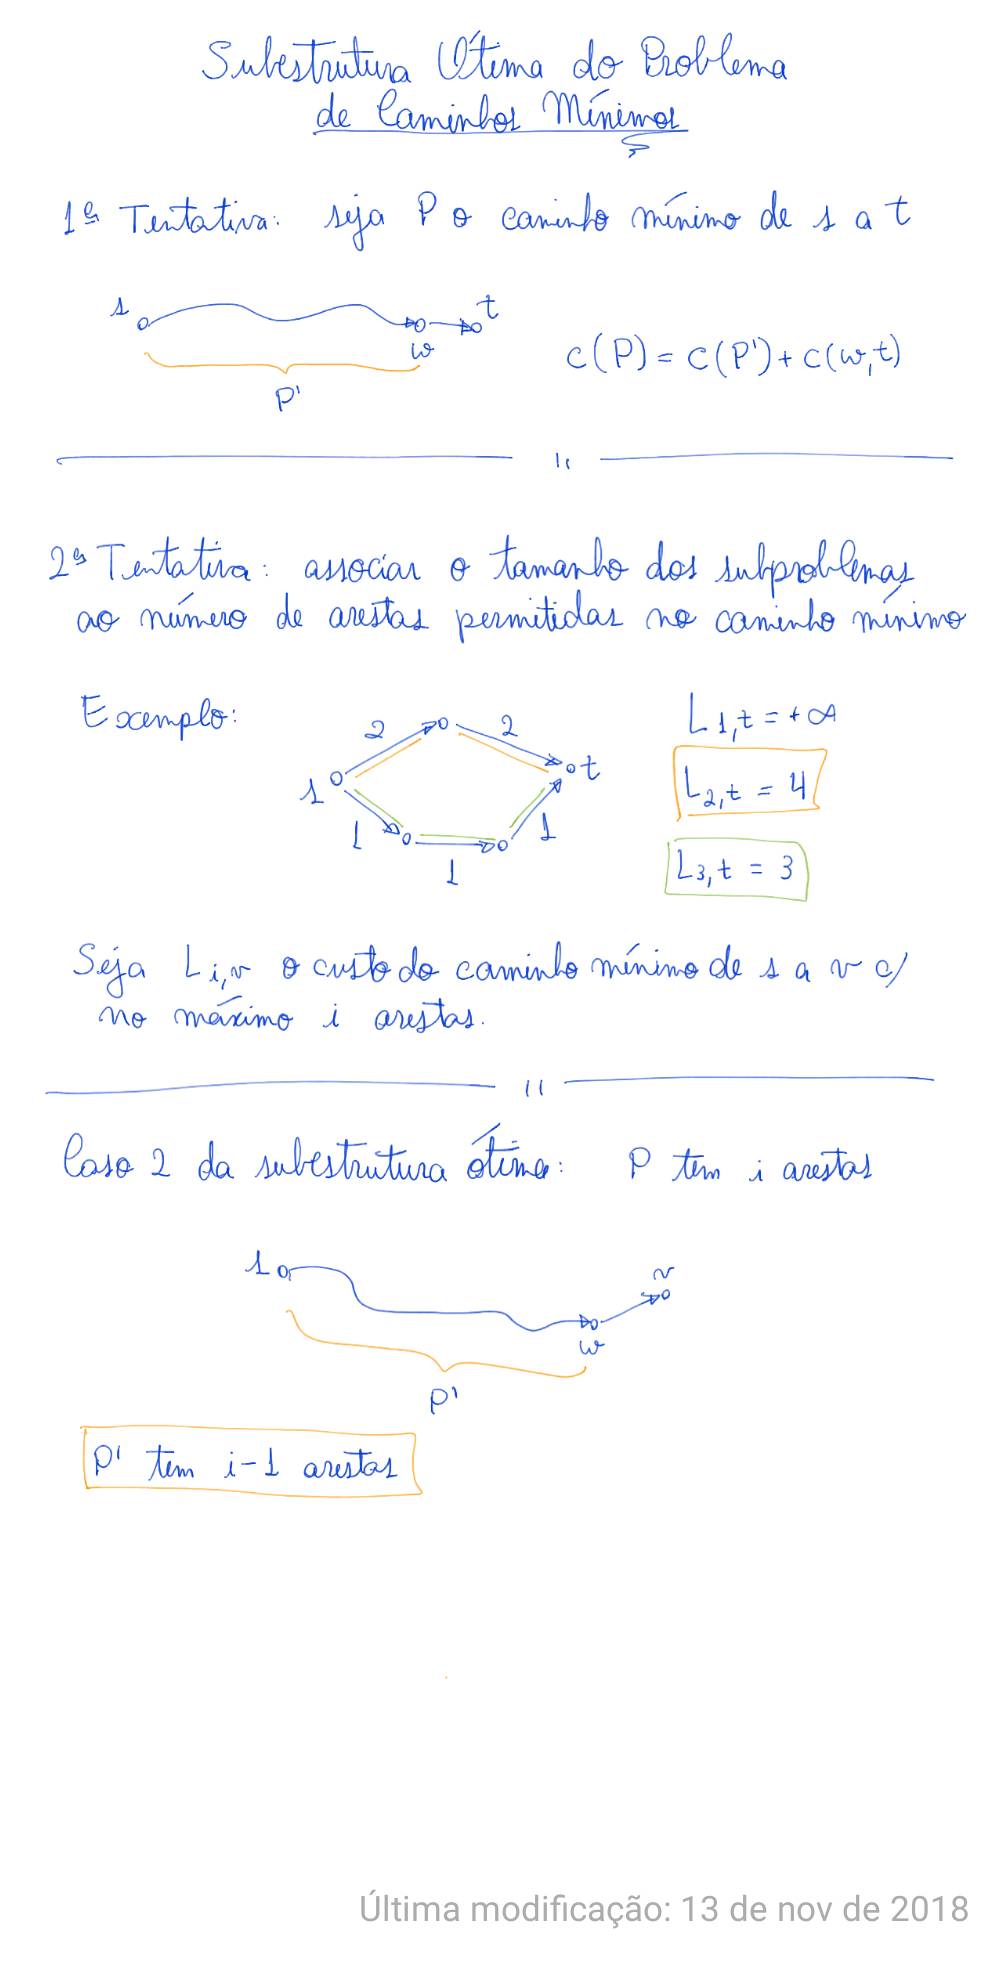 Subestrutura Ótima do Problema
de Caminhos Mínimos
1ª Tentativa: seja P o caminho mínimo de s a t
s
t
w
P'
c(P) = c(P') + c(w,t)
2ª Tentativa: associar o tamanho dos subproblemas
ao número de arestas permitidas no caminho mínimo
Exemplo:
2
2
s
t
1
1
1
L1,t = +∞
L2,t = 4
L3,t = 3
Seja Li,v o custo do caminho mínimo de s a v c/
no máximo i arestas.
Caso 2 da subestrutura ótima: P tem i arestas
s
v
w
P'
P' tem i-1 arestas
Última modificação: 13 de nov de 2018